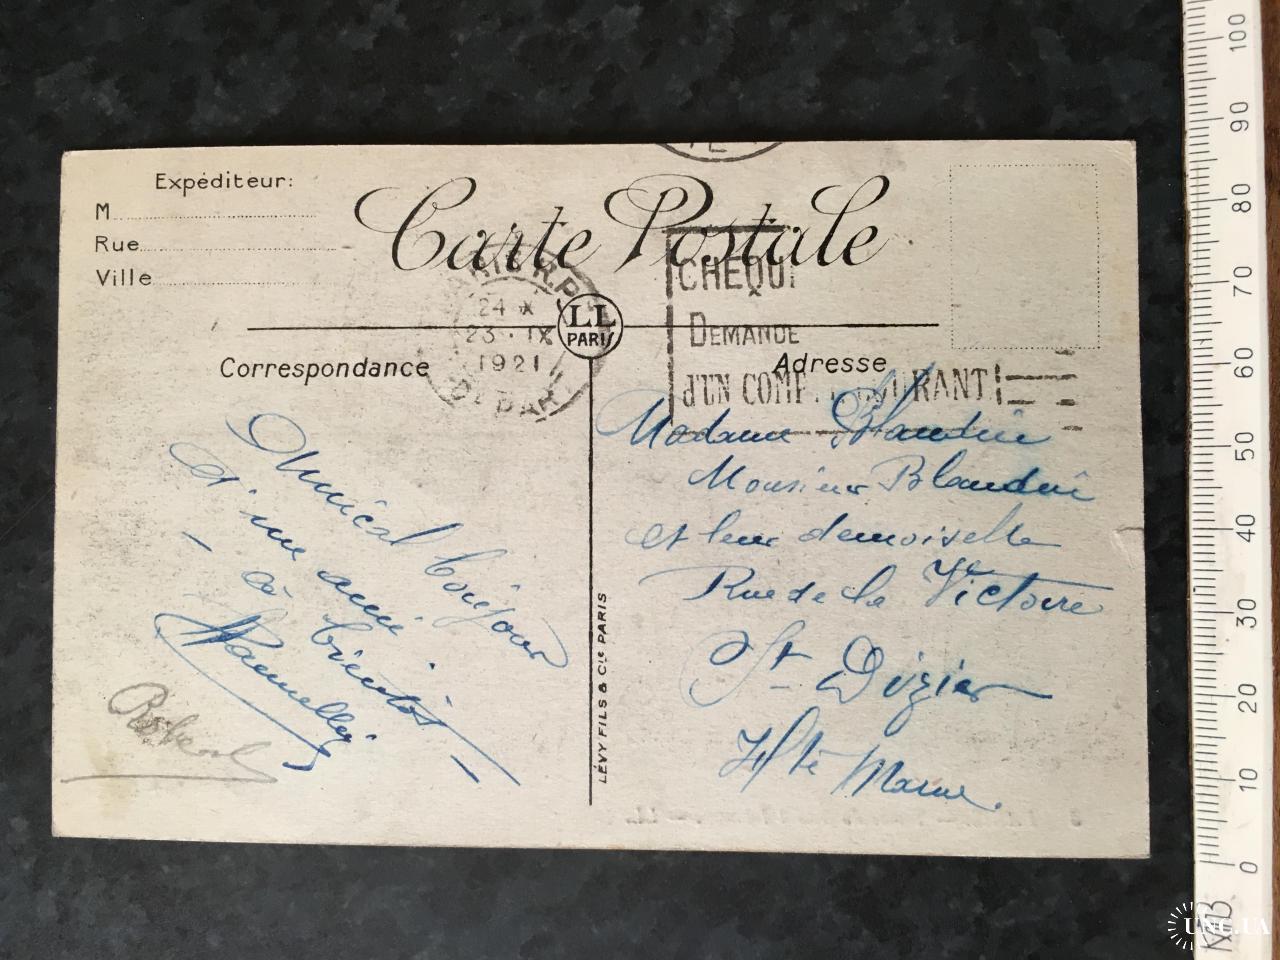 Expéditeur:
M
Rue
Ville
Carte Postale
24 X
23 · IX
1921
DEPART
LL
PARIS
CHEQU
DEMANDE
d'UN COMP COURANT!
Correspondance
Adresse
Amical bonjour
d'une amie
- à bientôt -
Robert
Madame Blandin
Monsieur Blandin
et leur demoiselle
Rue de la Victoire
St Dizier
Hte Marne.
LÉVY FILS & Cie PARIS
100
90
80
70
60
50
40
30
20
10
0
KVB
UNC.UA